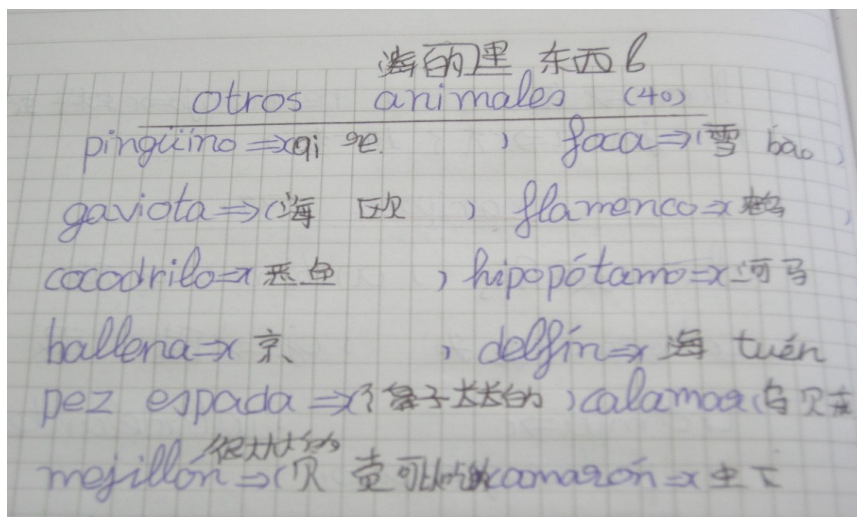 海的里 东西 6
otros animales (40)
pingüino => qi 'e , foca => 雪 bào ,
gaviota => 海 欧 , flamenco => 鹤 ,
cocodrilo => 恶鱼 , hipopótamo => 河马
ballena => 京 , delfín => 海 tuén
pez espada => 鼻子大大的 ) calamar (乌贝
很大大的
mejillón => (贝 可以吃 camarón => 虫下